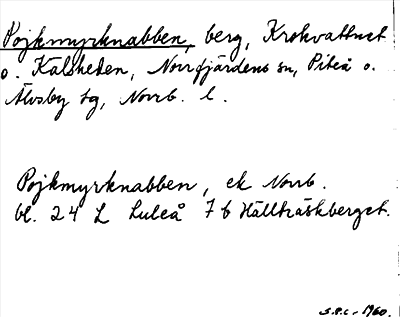 Pojkmyrknabben, berg, Krokvattnet
o. Kälsheden, Norrfjärdens sn, Piteå o.
Älvsby tg, Norrb. l.
Pojkmyrknabben, ek Norrb.
bl. 24 L Luleå 7 b Hällträskberget.
S.P.C. - 1960.